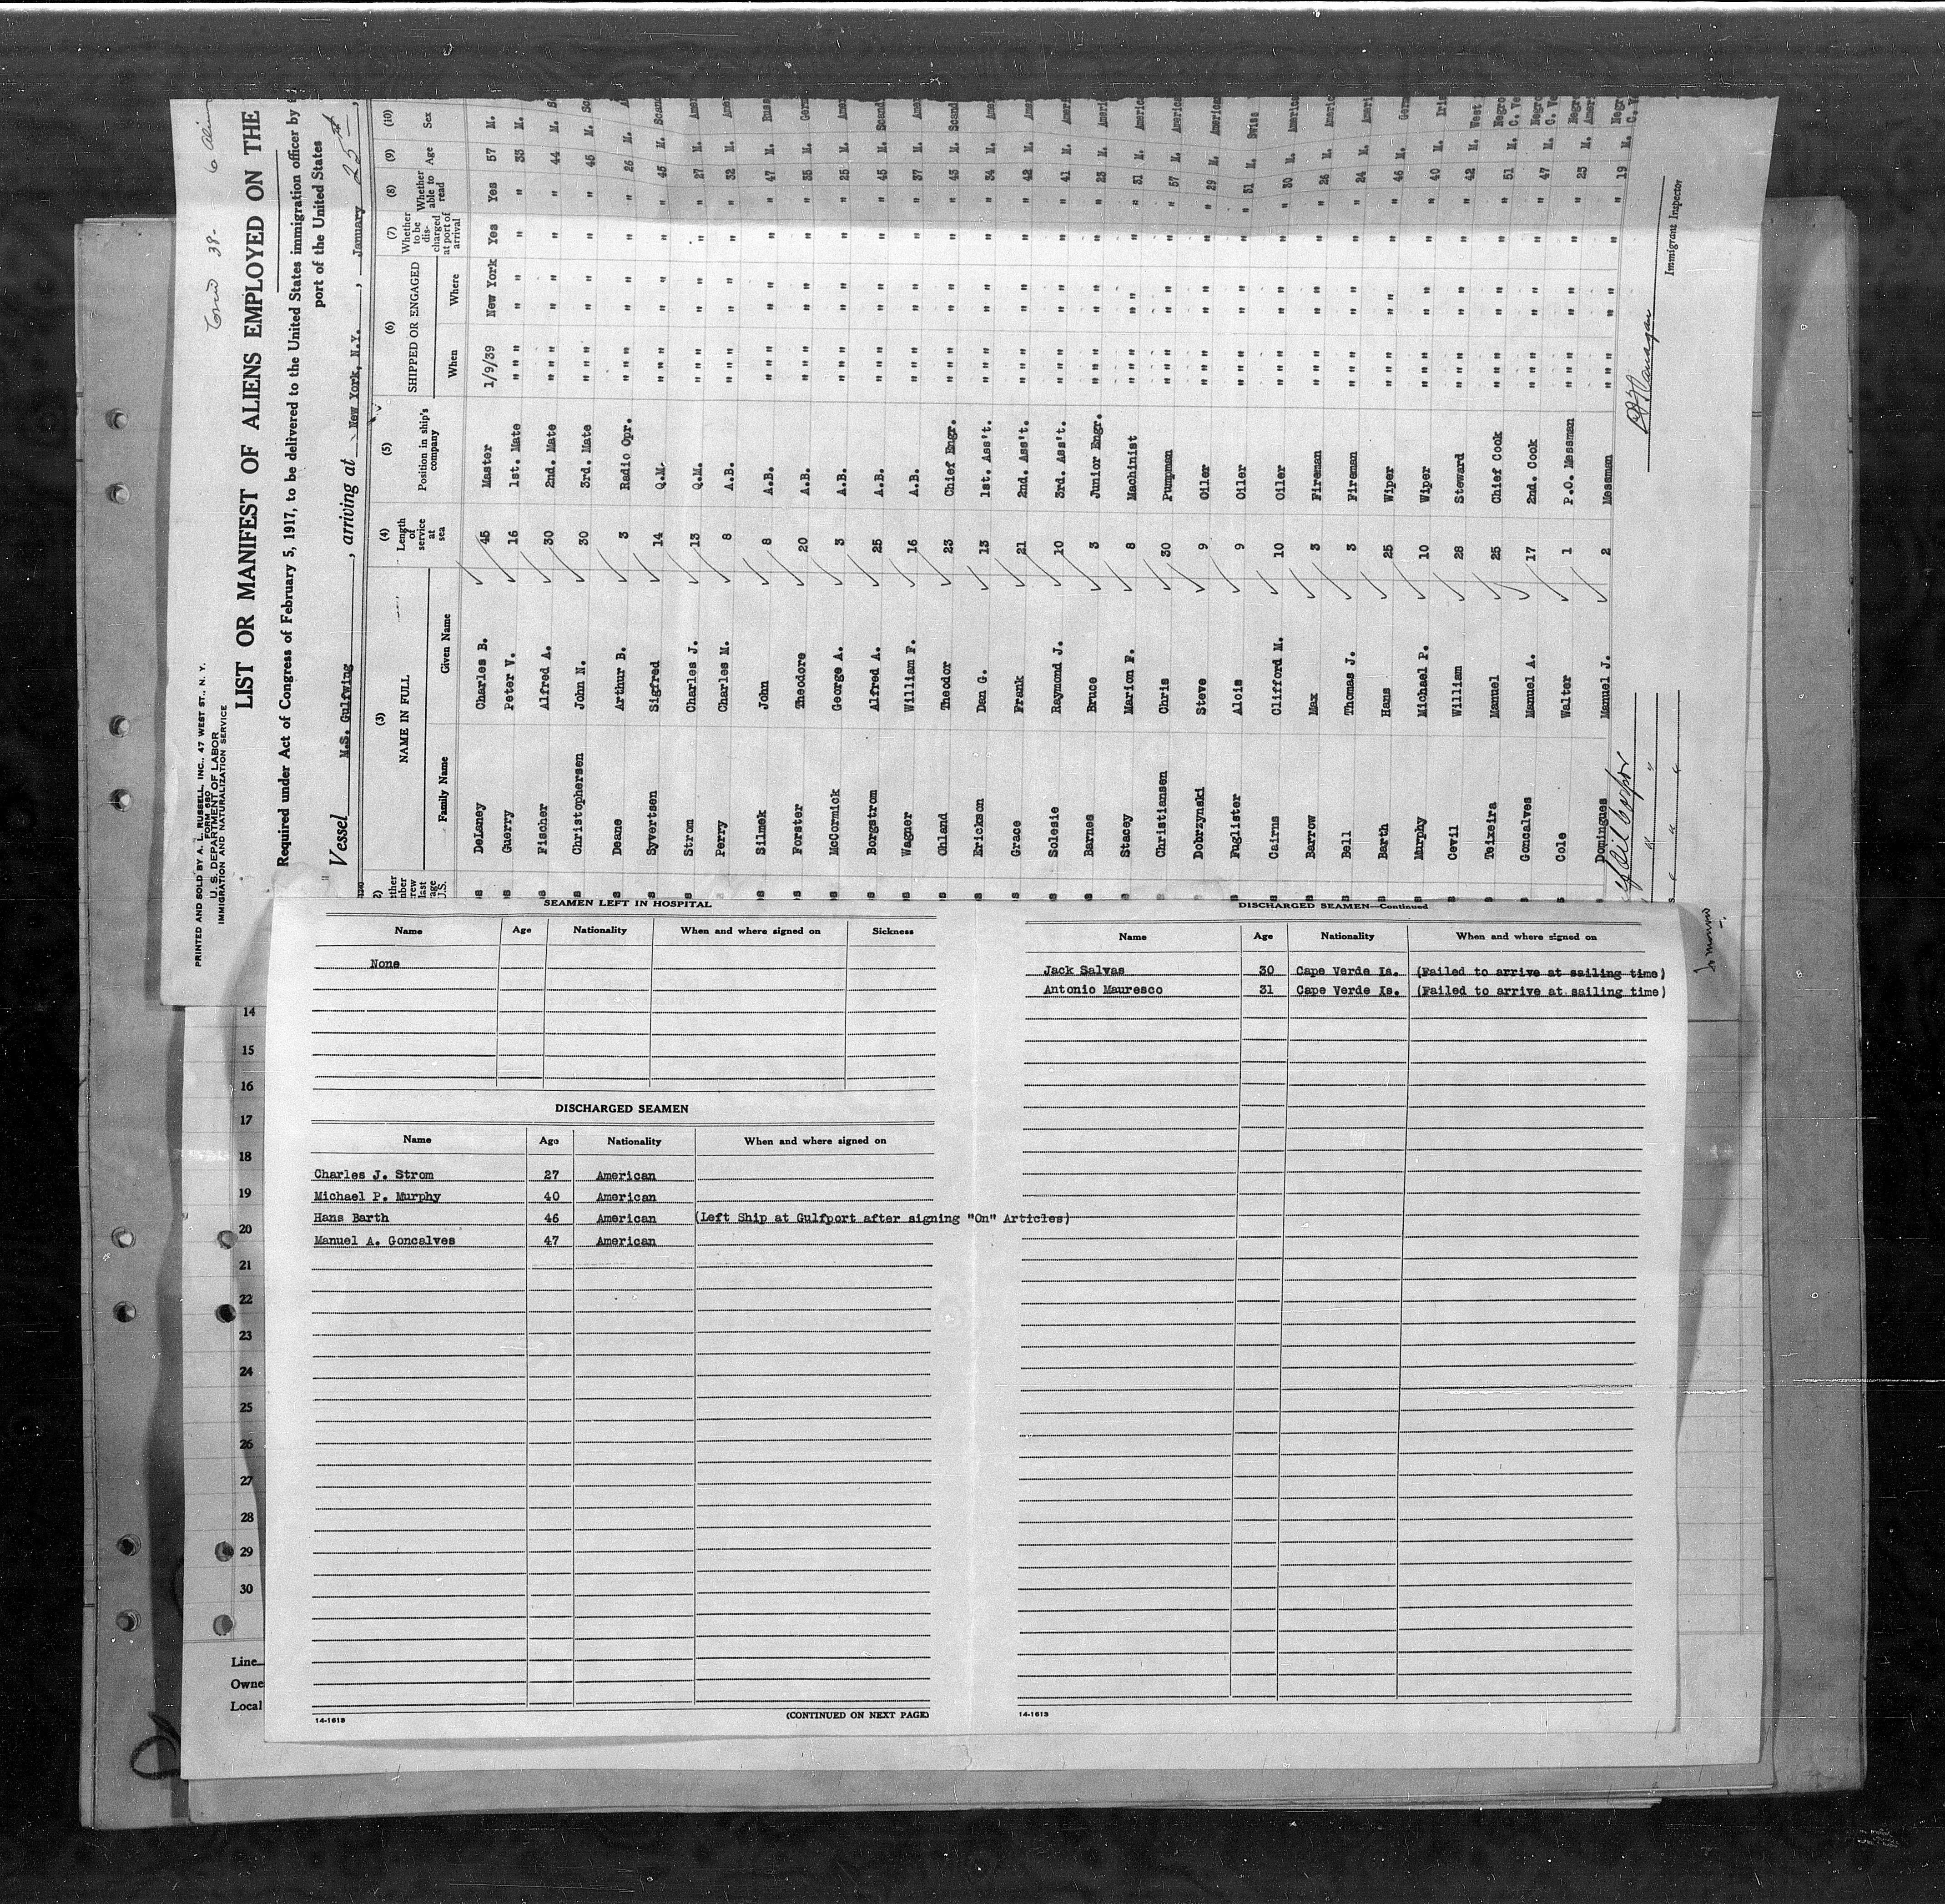 PRINTED AND SOLD BY A. L. RUSSELL, INC., 47 WEST ST., N. Y.
FORM 680
U. S. DEPARTMENT OF LABOR
IMMIGRATION AND NATURALIZATION SERVICE
38-
LIST OR MANIFEST OF ALIENS EMPLOYED ON THE
Required under Act of Congress of February 5, 1917, to be delivered to the United States immigration officer by
port of the United States
Vessel M.S. Gulfwing, arriving at New York, N.Y., January 25th,
(3) (4) (5) (6) (7) (8) (9) (10)
NAME IN FULL Length of service at sea Position in ship's company SHIPPED OR ENGAGED Whether to be discharged at port of arrival Whether able to read Age Sex
Family Name Given Name When Where
DeLaney Charles B. 45 Master 1/9/39 New York Yes Yes 57 M.
Guerry Peter V. 16 1st. Mate " " " " " " " 33 M.
Fischer Alfred A. 30 2nd. Mate " " " " " " " 44 M.
Christophersen John N. 30 3rd. Mate " " " " " " " 45 M.
Deane Arthur B. 3 Radio Opr. " " " " " " " 26 M.
Syvertsen Sigfred 14 Q.M. " " " " " " " 45 M. Scand
Strom Charles J. 13 Q.M. " " " " " " " 27 M. Amer
Perry Charles M. 8 A.B. " " " " " " " 32 M. Amer
Silmek John 8 A.B. " " " " " " " 47 M. Russ
Forster Theodore 20 A.B. " " " " " " " 35 M. Germ
McCormick George A. 3 A.B. " " " " " " " 25 M. Amer
Borgstrom Alfred A. 25 A.B. " " " " " " " 45 M. Scand
Wagner William F. 16 A.B. " " " " " " " 37 M. Amer
Ohland Theodor 23 Chief Engr. " " " " " " " 43 M. Scand
Erickson Dan G. 13 1st. Ass't. " " " " " " " 34 M. Amer
Grace Frank 21 2nd. Ass't. " " " " " " " 42 M. Amer
Solesie Raymond J. 10 3rd. Ass't. " " " " " " " 41 M. Ameri
Barnes Bruce 3 Junior Engr. " " " " " " " 23 M. Ameri
Stacey Marion F. 8 Machinist " " " " " " " 31 M. Americ
Christiansen Chris 30 Pumpman " " " " " " " 57 M. America
Dobrzynski Steve 9 Oiler " " " " " " " 29 M. American
Fuglister Alois 9 Oiler " " " " " " " 31 M. Swiss
Cairns Clifford M. 10 Oiler " " " " " " " 30 M. America
Barrow Max 3 Fireman " " " " " " " 26 M. Americ
Bell Thomas J. 3 Fireman " " " " " " " 24 M. Ameri
Barth Hans 25 Wiper " " " " " " " 46 M. Germ
Murphy Michael P. 10 Wiper " " " " " " " 40 M. Iris
Cevil William 28 Steward " " " " " " " 42 M. West
Teixeira Manuel 25 Chief Cook " " " " " " " 51 M. Negro C. Ve
Goncalves Manuel A. 17 2nd. Cook " " " " " " " 47 M. Negro C. Ve
Cole Walter 1 P.O. Messman " " " " " " " 23 M. Negro Ameri
Domingues Manuel J. 2 Messman " " " " " " " 19 M. Negro C. V
Immigrant Inspector
SEAMEN LEFT IN HOSPITAL
Name Age Nationality When and where signed on Sickness
None
DISCHARGED SEAMEN
Name Age Nationality When and where signed on
Charles J. Strom 27 American
Michael P. Murphy 40 American
Hans Barth 46 American (Left Ship at Gulfport after signing "On" Articles)
Manuel A. Goncalves 47 American
14-1613 (CONTINUED ON NEXT PAGE)
DISCHARGED SEAMEN—Continued
Name Age Nationality When and where signed on
Jack Salvas 30 Cape Verde Is. (Failed to arrive at sailing time)
Antonio Mauresco 31 Cape Verde Is. (Failed to arrive at sailing time)
14-1613
14
15
16
17
18
19
20
21
22
23
24
25
26
27
28
29
30
Line
Owne
Local